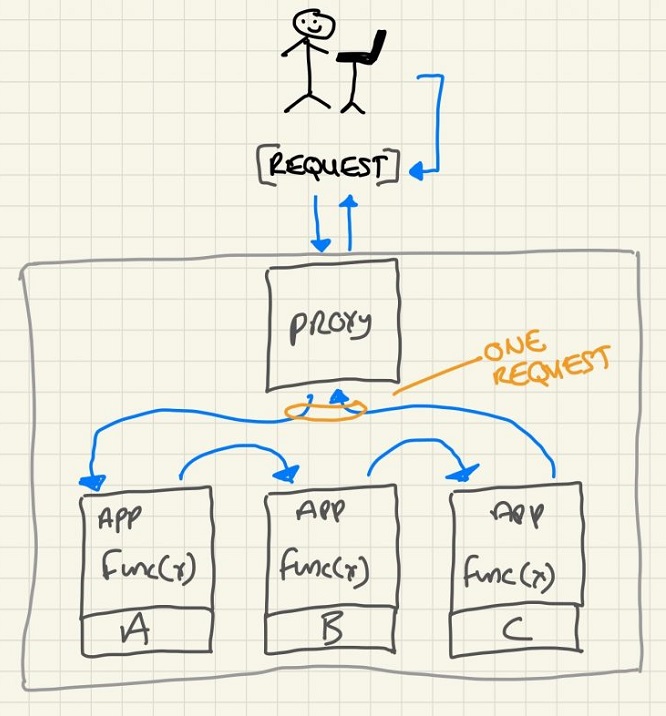 [REQUEST]
PROXY
ONE
REQUEST
APP
func(x)
A
APP
func(x)
B
APP
func(x)
C